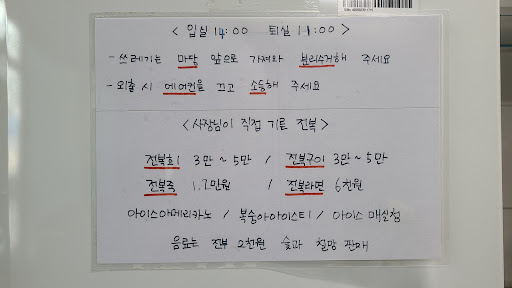 < 입실 14:00 퇴실 11:00 >
- 쓰레기는 마당 앞으로 가져와 분리수거해 주세요
- 외출 시 에어컨을 끄고 소등해 주세요
< 사장님이 직접 기른 전복 >
전복회 3만 ~ 5만 / 전복구이 3만 ~ 5만
전복죽 1.2만원 / 전복라면 6천원
아이스아메리카노 / 복숭아아이스티 / 아이스 매실청
음료는 전부 2천원 숯과 철망 판매